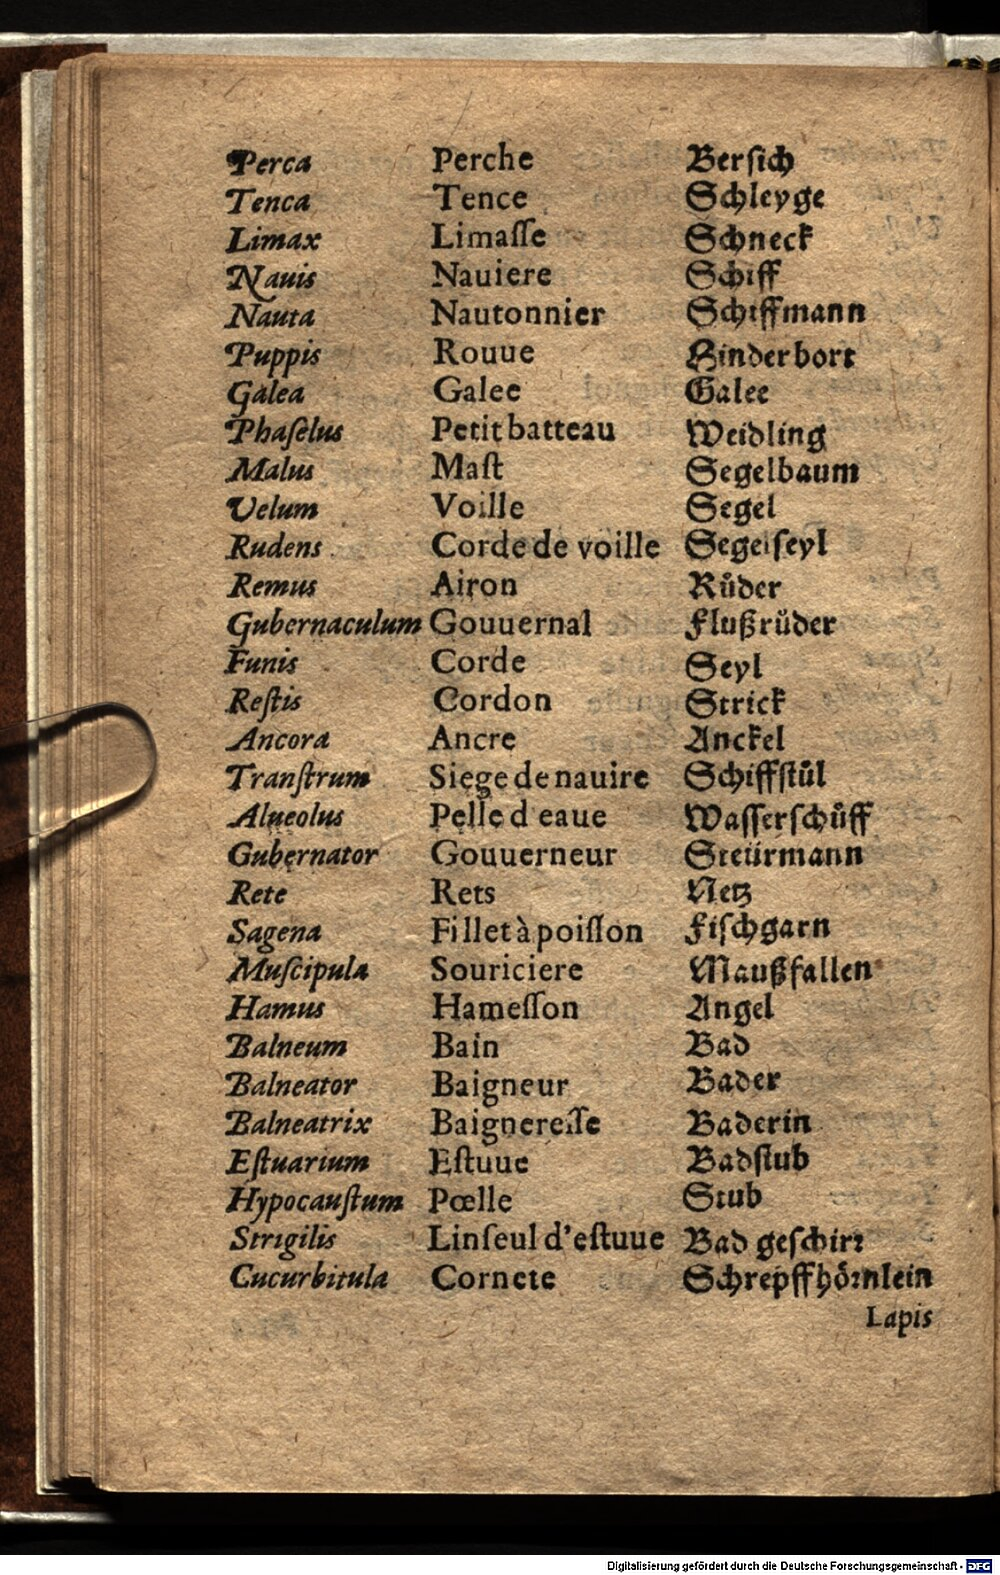 Perca Perche Berſich
Tenca Tence Schleyge
Limax Limaſſe Schneck
Nauis Nauiere Schiff
Nauta Nautonnier Schiffmann
Puppis Rouue Hinderbort
Galea Galee Galee
Phaſelus Petit batteau Weidling
Malus Maſt Segelbaum
Velum Voille Segel
Rudens Corde de voille Segelſeyl
Remus Airon Růder
Gubernaculum Gouuernal Flußrůder
Funis Corde Seyl
Reſtis Cordon Strick
Ancora Ancre Anckel
Tranſtrum Siege de nauire Schiffſtůl
Alueolus Pelle d'eaue Waſſerſchůff
Gubernator Gouuerneur Steürmann
Rete Rets Netz
Sagena Fillet à poiſſon Fiſchgarn
Muſcipula Souriciere Maußfallen
Hamus Hameſſon Angel
Balneum Bain Bad
Balneator Baigneur Bader
Balneatrix Baignereſſe Baderin
Eſtuarium Eſtuue Badſtub
Hypocauſtum Pœlle Stub
Strigilis Linſeul d'eſtuue Bad geſchirr
Cucurbitula Cornete Schrepffhörnlein
Lapis
Digitalisierung gefördert durch die Deutsche Forschungsgemeinschaft - DFG